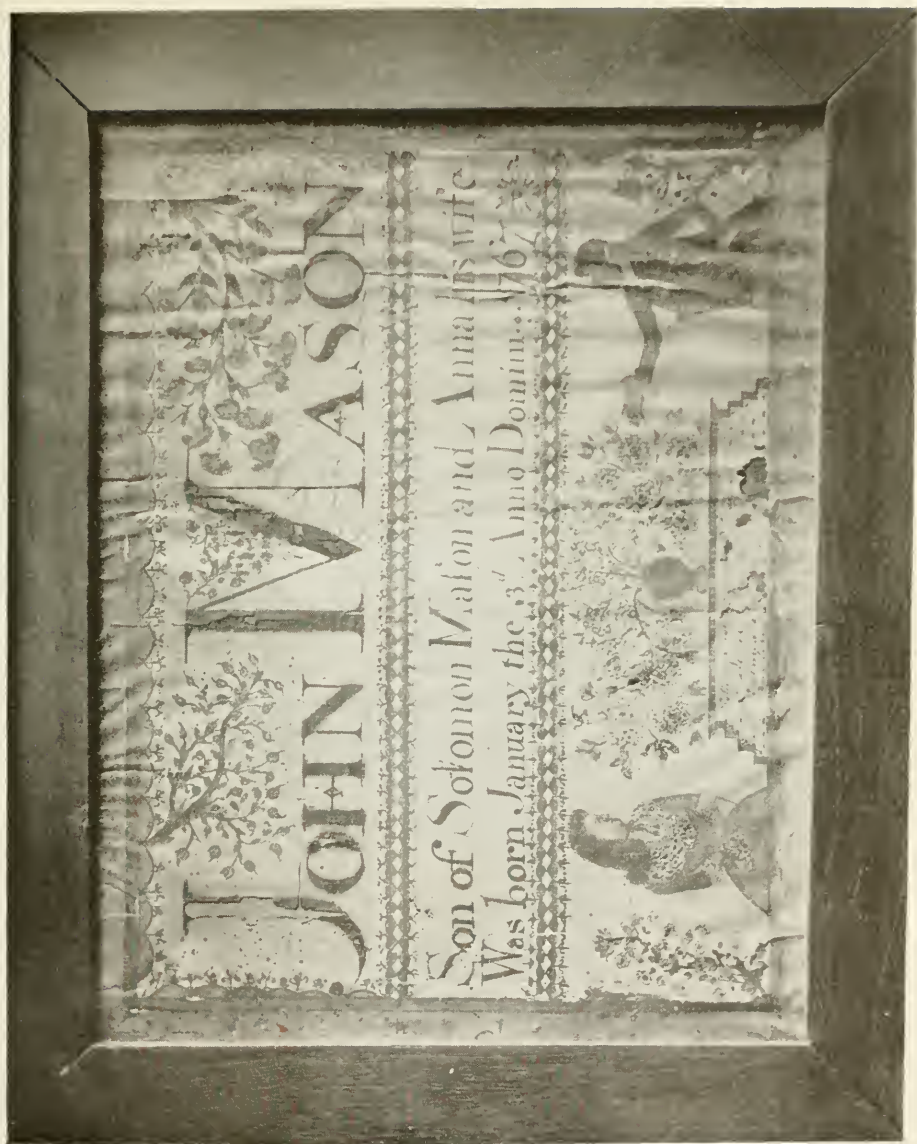 JOHN MASON
Son of Solomon Maſon and Anna his wife
Was born January the 3ᵈ Anno Domini... 1767